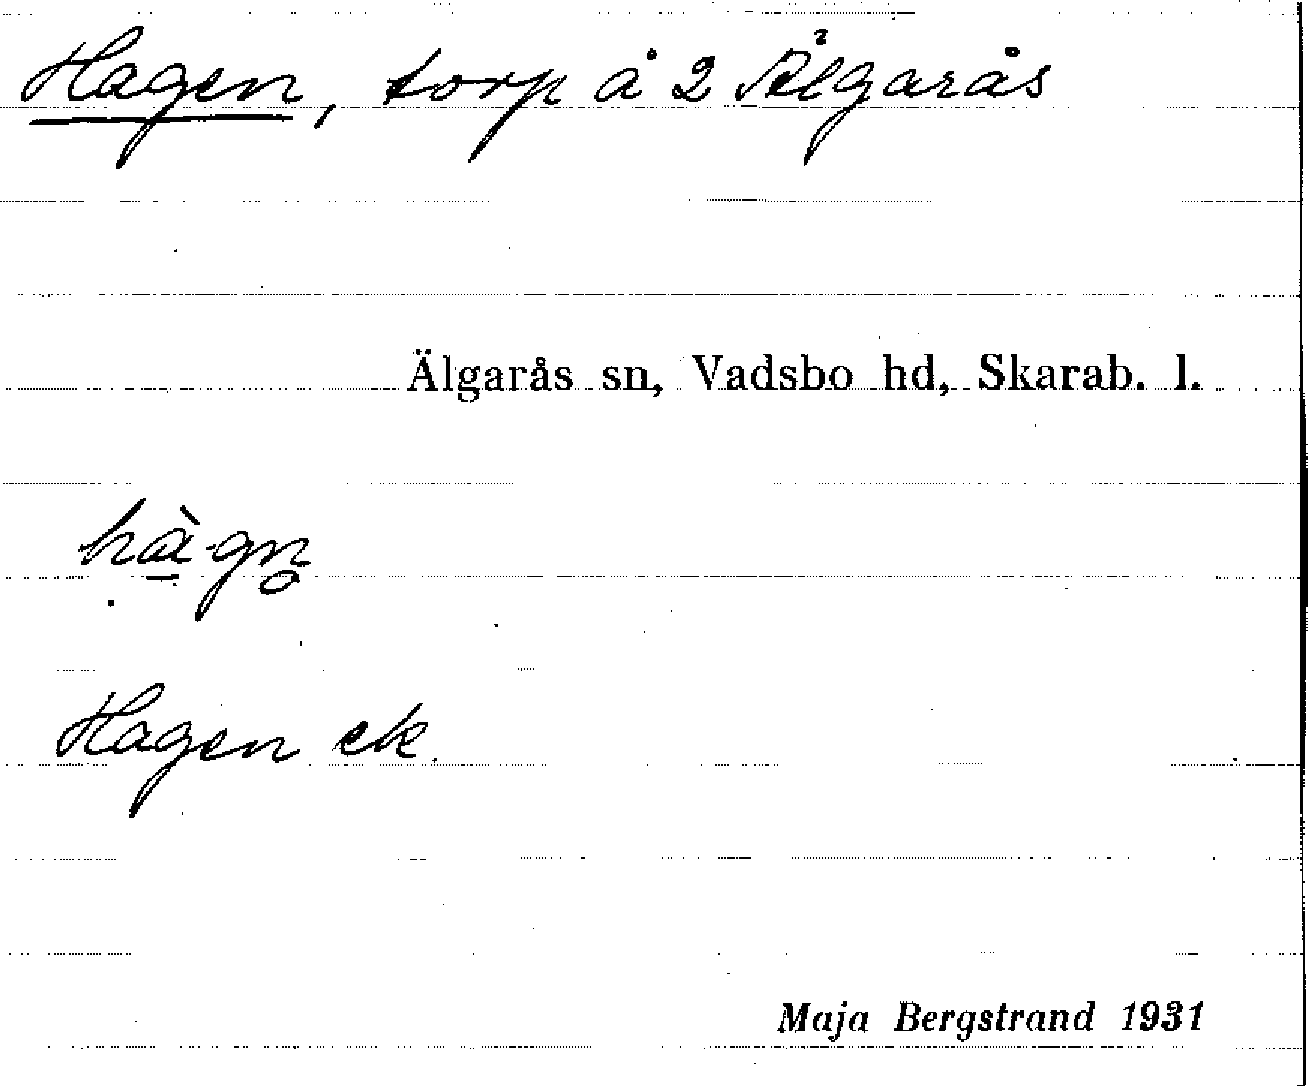 Hagen, torp å 2 Älgarås
Älgarås sn, Vadsbo hd, Skarab. l.
hà̱gn̥
Hagen ek.
Maja Bergstrand 1931